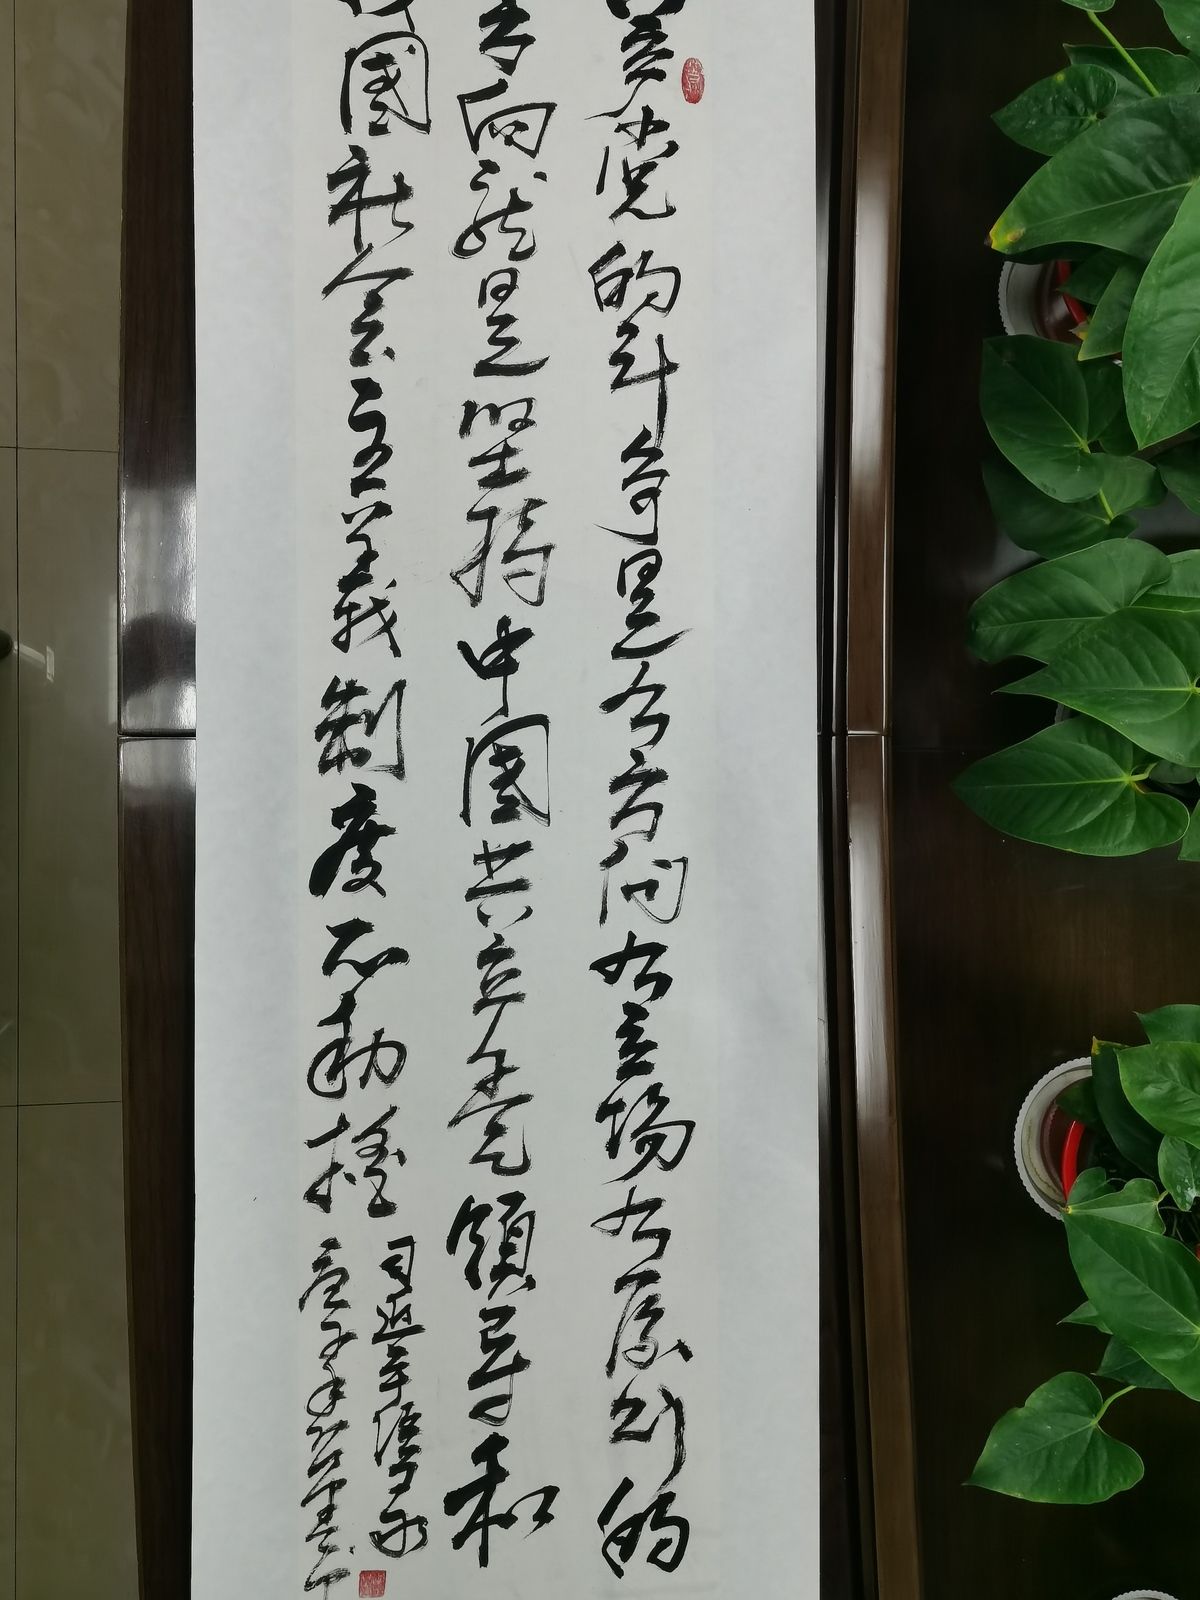 共产党的斗争是有方向有立场有原则的
大方向就是坚持中国共产党领导和
我国社会主义制度不动摇
习近平语录
庚子年